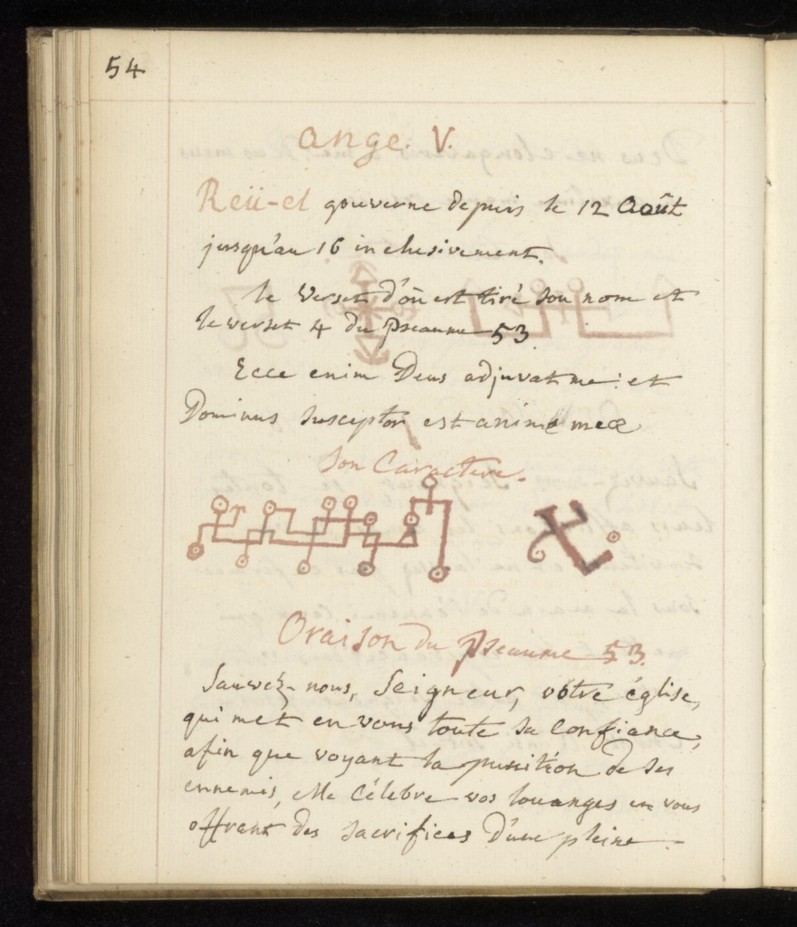 54
ange. V.
Reü-el gouverne depuis le 12 Août
jusqu'au 16 inclusivement.
le verset d'où est tiré son nom est
le verset 4 du Pseaume 53
Ecce enim Deus adjuvat me: et
Dominus susceptor est anime meæ
Son Caractere.
Oraison du Pseaume 53.
Sauvez-nous, Seigneur, vôtre église,
qui met en vous toute sa confiance,
afin que voyant la punition de ses
ennemis, elle célebre vos louanges en vous
offrant des sacrifices d'une pleine